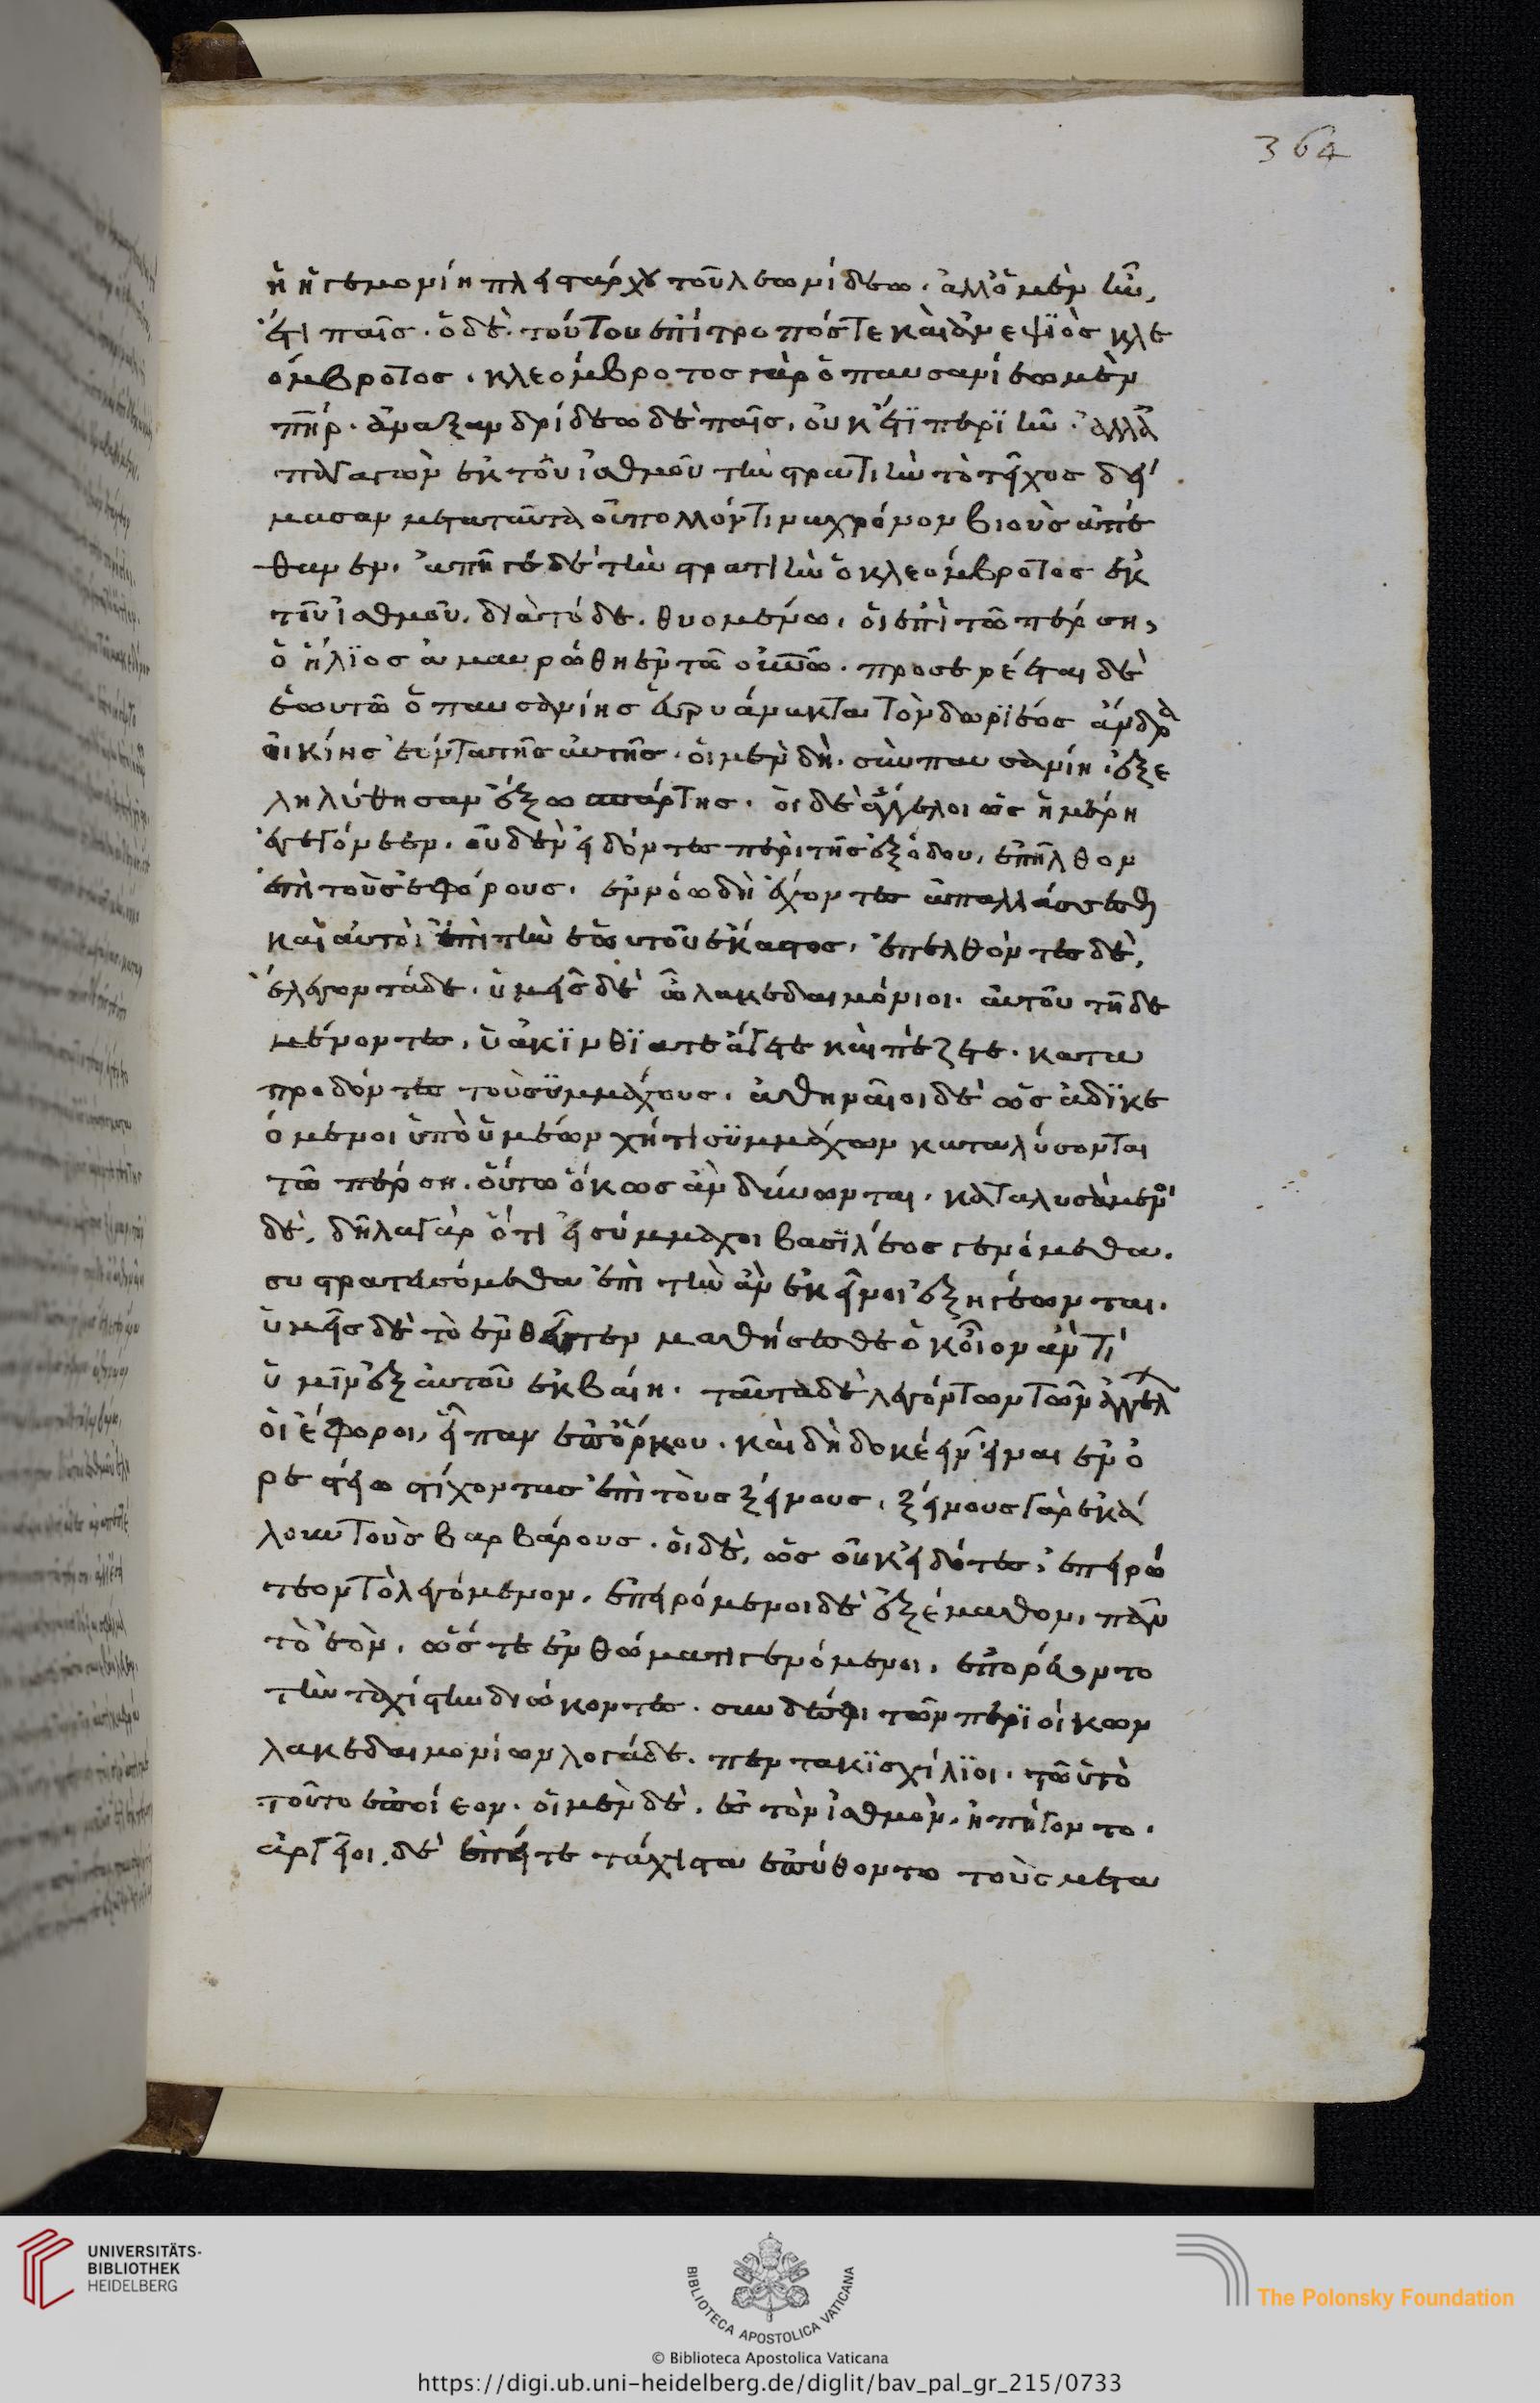 364
ἡ ἡγεμονίη πλειστάρχου τοῦ λεωνίδεω· ἀλλ' ὁ μὲν ἦν,
ἔτι παῖς· ὁ δὲ τούτου ἐπίτροπός τε καὶ ἀνεψϊὸς κλε
όμβροτος· κλεόμβροτος γὰρ ὁ παυσανίεω μὲν
πηρ· ἀναξανδρίδεω δὲ παῖς, οὐκέτϊ περϊῆν· ἀλλὰ
ἀπαγαγὼν ἐκ τοῦ ἰσθμοῦ τὴν στρατιὴν τὸ τεῖχος δεί
μασαν μετα ταῦτα οὐ πολλόν τινα χρόνον βιοὺς ἀπέ
θανεν· ἀπῆγε δὲ τὴν στρατιὴν ὁ κλεόμβροτος ἐκ
τοῦ ἰσθμοῦ, διὰ τόδε. θυομένω, οἱ ἐπὶ τῶ πέρση,
ὁ ἥλϊος ἀμαυρώθη ἐν τῶ οὐνῶ· προσερέεται δὲ
ἑωυτῶ ὁ παυσανίης εὐρυάνακτα τὸν δωρϊέος ἄνδρα
οἰκίης ἐόντα τῆς αὐτῆς· οἱ μὲν δὴ. σὺν παυσανίη ἐξε
ληλύθησαν ἔξω σπάρτης· οἱ δὲ ἄγγελοι ὡς ἡμέρη
ἐγεγόνεεν, οὐδὲν εἰδόντες περὶ τῆς ἐξόδου, ἐπῆλθον
ἐπὶ τοὺς ἐφόρους, ἐν νόω δὴ ἔχοντες ἀπαλλάσσεσθαι
καὶ αὐτοὶ ἐπὶ τὴν ἑωυτοῦ ἕκαστος, ἐπελθόντες δὲ,
ἔλεγον τάδε. ὑμεῖς δὲ ὦ λακεδαιμόνιοι. αὐτοῦ τῆδε
μένοντες, ὑακϊνθϊα τε ἄγετε καὶ πέζετε· κατα
προδόντες τοὺς ϋμμάχους, ἀθηναῖοι δὲ ὡς ἀδϊκε
όμενοι ὑπὸ ὑμέων χήτι σϋμμάχων καταλύσονται
τῶ πέρση. οὕτω ὅκως ἂν δύνωνται. καταλυσάμενοι
δὲ, δῆλα γὰρ ὅτι εἰ σύμμαχοι βασϊλέος γενόμεθα.
συστρατευσόμεθα ἐπὶ τὴν ἂν ἐκεῖνοι ἐξηγέωνται.
ὑμεῖς δὲ τὸ ἐνθεῦτεν μαθήσεσθε ὁκοῖον ἄν τι
ὑμῖν ἐξ αὐτοῦ ἐκβαίη. ταῦτα δὲ λεγόντων τῶν ἀγγέλ
οἱ ἔφοροι, εἶπαν ἐπόρκου. καὶ δὴ δοκέειν εἶναι ἐν ὀ
ρεστείω στίχοντας ἐπὶ τοὺς ξείνους, ξείνους γὰρ ἐκά
λουν τοὺς βαρβάρους. οἱ δὲ, ὡς οὐκ εἰδότες, ἐπειρώ
τεον τὸ λεγόμενον, ἐπειρόμενοι δὲ ἐξέμαθον, πᾶν
τὸ ἐὸν, ὥστε ἐν θώματι γενόμενοι, ἐπορέυοντο
τὴν ταχίστην διώκοντες. συν δέσφι τῶν περϊοίκων
λακεδαιμονίων λογάδε. πεντακϊσχίλϊοι. τὠυτὸ
τοῦτο ἐποίεον. οἱ μὲν δὲ, ἐς τὸν ἰσθμὸν, ἠπήγοντο.
ἀργεῖοι δὲ ἐπείτε τάχιστα ἐπύθοντο τοὺς μετα
UNIVERSITÄTS-
BIBLIOTHEK
HEIDELBERG
BIBLIOTECA APOSTOLICA VATICANA
© Biblioteca Apostolica Vaticana
The Polonsky Foundation
https://digi.ub.uni-heidelberg.de/diglit/bav_pal_gr_215/0733